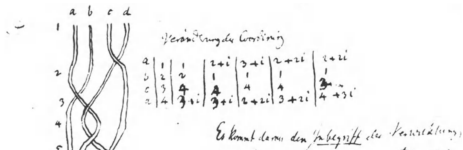 a b c d
1
Veränderung der Coordinirung
a | 1 | 1 | 2+i | 3+i | 2+2i | 2+2i
b | 2 | 2 | 1 | 1 | 1 | 1
c | 3 | 4 | 4 | 4 | 4 | 3
d | 4 | 3+i | 3+i | 2+2i | 3+2i | 4+3i
2
3
4
Es kommt darauf den Inbegriff der Verwicklung
5